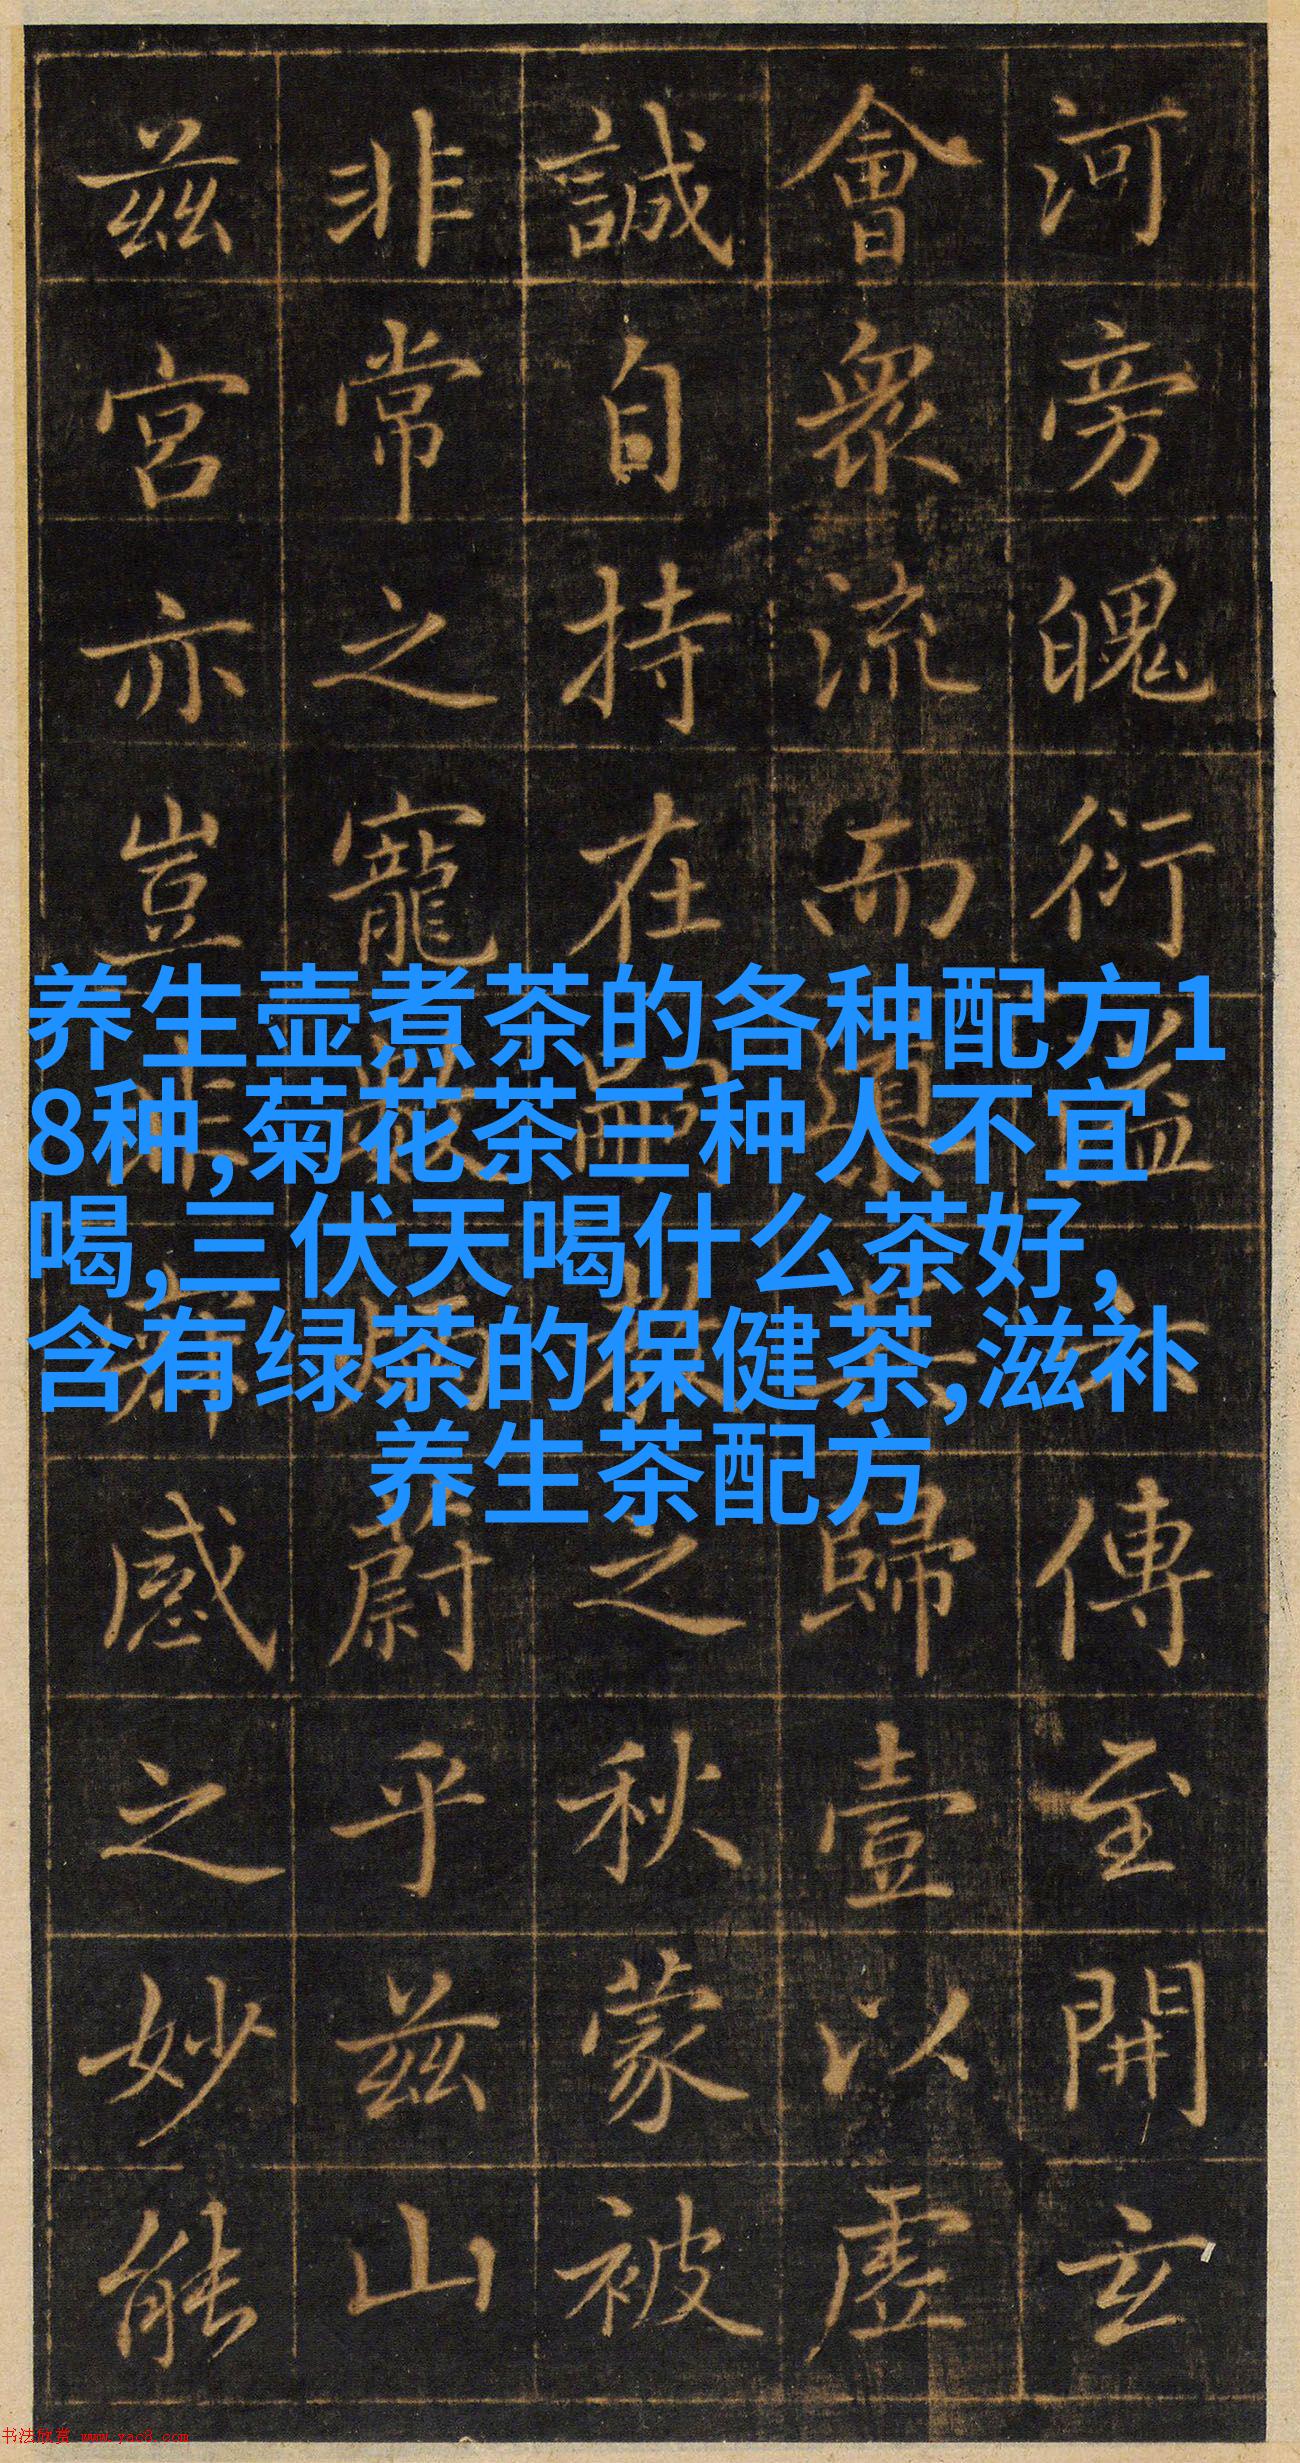 河旁魄衍傳至開玄
會眾流而歸壹以虛
誠自持在之秋蒙被
非常之寵蔚乎茲山
茲宮亦豈感之妙能
养生壶煮茶的各种配方1
8种,菊花茶三种人不宜
喝,三伏天喝什么茶好,
含有绿茶的保健茶,滋补
养生茶配方
书法欣赏 www.yac8.com